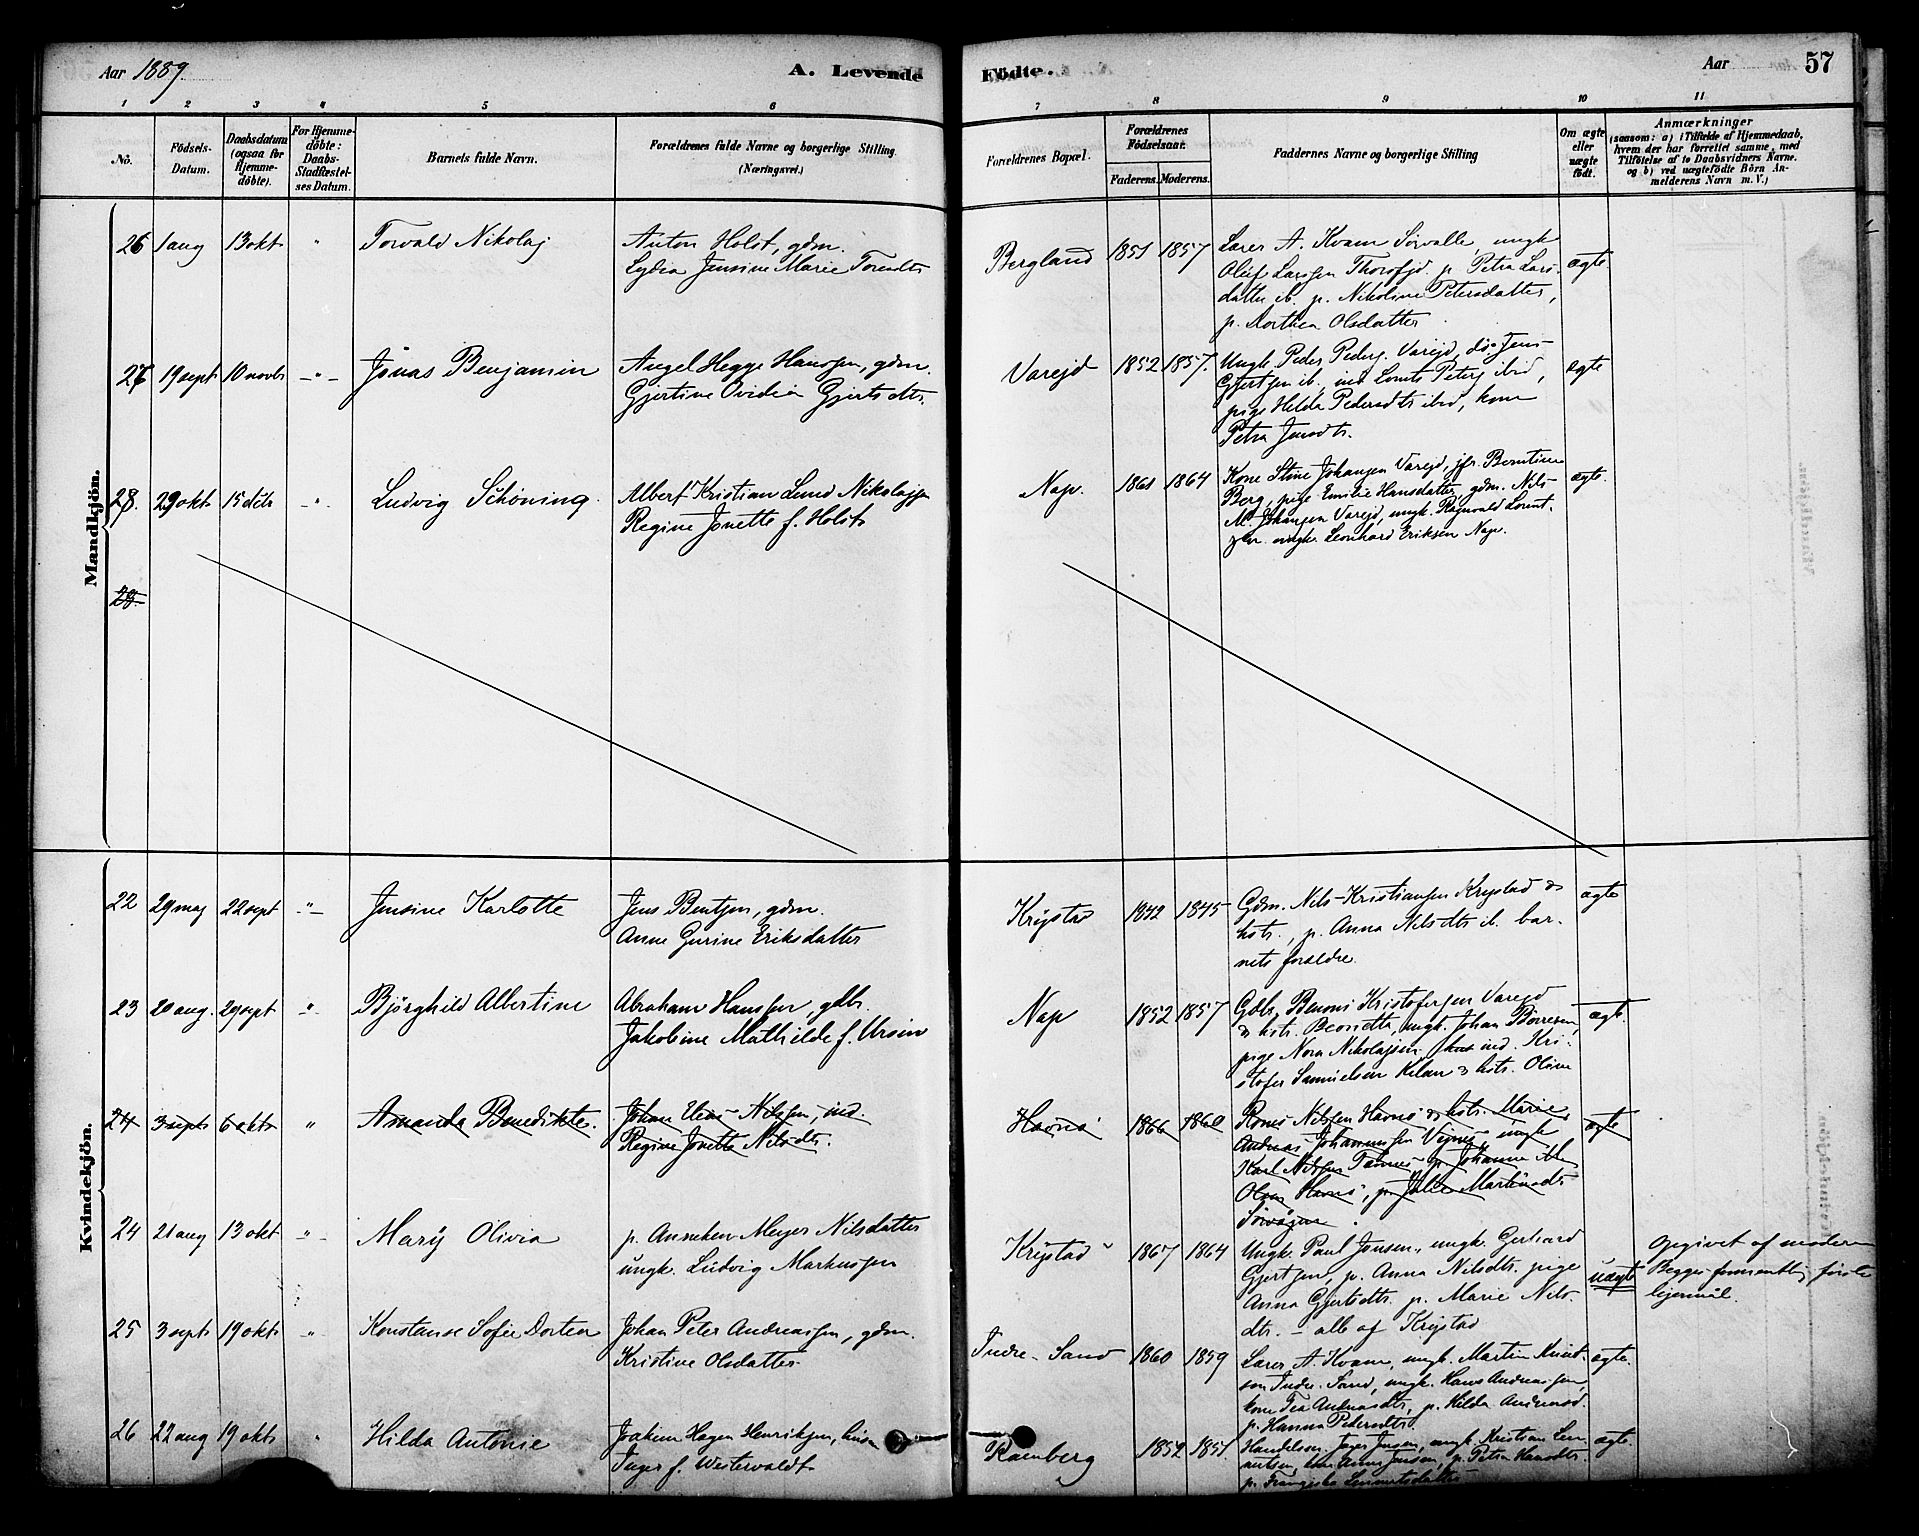 Aar 1889.
A. Levende Födte.
Aar 57
1 2 3 4 5 6 7 8 9 10 11
No.
Födsels-Datum.
Daabsdatum (ogsaa for Hjemme-döbte).
For Hjemme-döbte: Daabs-Stadfæstel-ses Datum.
Barnets fulde Navn.
Forældrenes fulde Navne og borgerlige Stilling
(Næringsvei.)
Forældrenes Bopæl.
Forældrenes Födselsaar.
Faderens. Moderens.
Faddernes Navne og borgerlige Stilling
Om ægte eller uægte födt.
Anmærkninger
(saasom: a) i Tilfælde af Hjemmedaab,
hvem der har forrettet samme, med
Tilföielse af to Daabsvidners Navne,
og b) ved uægtefödte Börn An-
melderens Navn m. V.)
Mandkjön.
26 1 aug 13 okt " Torvald Nikolaj
Anton Holst, gdm.
Lydia Jensine Marie Torendts
Bergland 1851 1857
Lærer A. Kvam Sørvalle, ungk
Oluf Larssen Thorsfjd. p. Petra Lars-
datter ib. p. Nikoline Petersdatter,
p. Dorthea Olsdatter
ægte
27 19 sept 10 novbr -"- Jonas Benjamin
Angel Hegge Hanssen, gdm.
Gjertine Ovidia Gjertsdtr.
Varejd 1852 1857.
Ungk. Peder Peders. Varejd, do Jens
Gjertsen ib., ind Lorents Peters ibid,
pige Hilda Pedersdtr ibid, kone
Petra Jensdtr.
ægte
28. 29 okt 15 dcbr -"- Ludvig Schöning.
Albert Kristian Lund Nikolajsen
Regine Jonette f. Holst
Nap. 1861 1864
Kone Stine Johansen Varejd, jfr. Berntine
Berg, pige Emilie Hansdatter, gdm. Nils
M. Johansen Varejd, ungk. Ragnvald Lorent-
zen. ungk. Leonhard Eriksen Nap.
ægte.
29.
Kvindekjön.
22 29 maj 22 sept -"- Jensine Karlotte
Jens Bentsen, gdm.
Anne Gurine Eriksdatter
Krystad 1842 1845
Gdm. Nils Kristiansen Krystad &
hstr., p. Anna Nilsdtr ib. bar-
nets forældre.
ægte
23 20 aug. 29 sept -"- Bjørghild Albertine
Abraham Hanssen, gdbr.
Jakobine Mathilde f. Ursin
Nap 1852 1857
Gdbr. Benoni Kristofersen Varejd
& hstr. Beondta, ungk. Johan Børresen,
pige Nora Nikolajsen, hus ind. Kri-
stofer Samuelsen Kilan & hstr. Oline
ægte.
24 3 sept 6 okt " Amanda Benedikte.
Johan Nilssen, ind.
Regine Jonette Nilsdtr.
Havnö 1866 1860
Nilssen Havnö & hstr. Marie
Andreas Johannessen ungk
Karl Nilssen p. Johanne M.
Olsen Havnö, p. Martinsdtr
Sørvågen.
ægte
24 21 aug 13 okt -"- Mary Olivia
p. Anneken Meyer Nilsdatter
ungk. Ludvig Markussen
Krystad 1867 1864
Ungk. Paul Jonsen, ungk. Gerhard
Gjertsen, p. Anna Nilsdtr. pige
Anna Gjertsdtr. p. Marie Nils-
dtr. - alle af Krystad
uægte
Opgivet af moderen
Begges første
lejermål.
25 3 sept 19 okt " Konstanse Sofie Dortea
Johan Peter Andreassen, gdm.
Kristine Olsdatter
Indre-Sand 1860 1859
Lærer A. Kvam, ungk. Martin Knut-
sen Indre-Sand, ungk. Hans Andreassen,
kone Tea Andreasdtr, p. Hilda Andreasd.
p. Hanna Pedersdtr
ægte.
26 22 aug 19 okt " Hilda Antonie
Joakim Hagen Henriksen,
Inger f. Westervaldt
Ramberg 1852 1851
Handelsm. Jensen, ungk. Kristian Len-
nertsen, Jensen, p. Petra Hansdtr.
p. Fransiska Lennertsdatter
ægte.